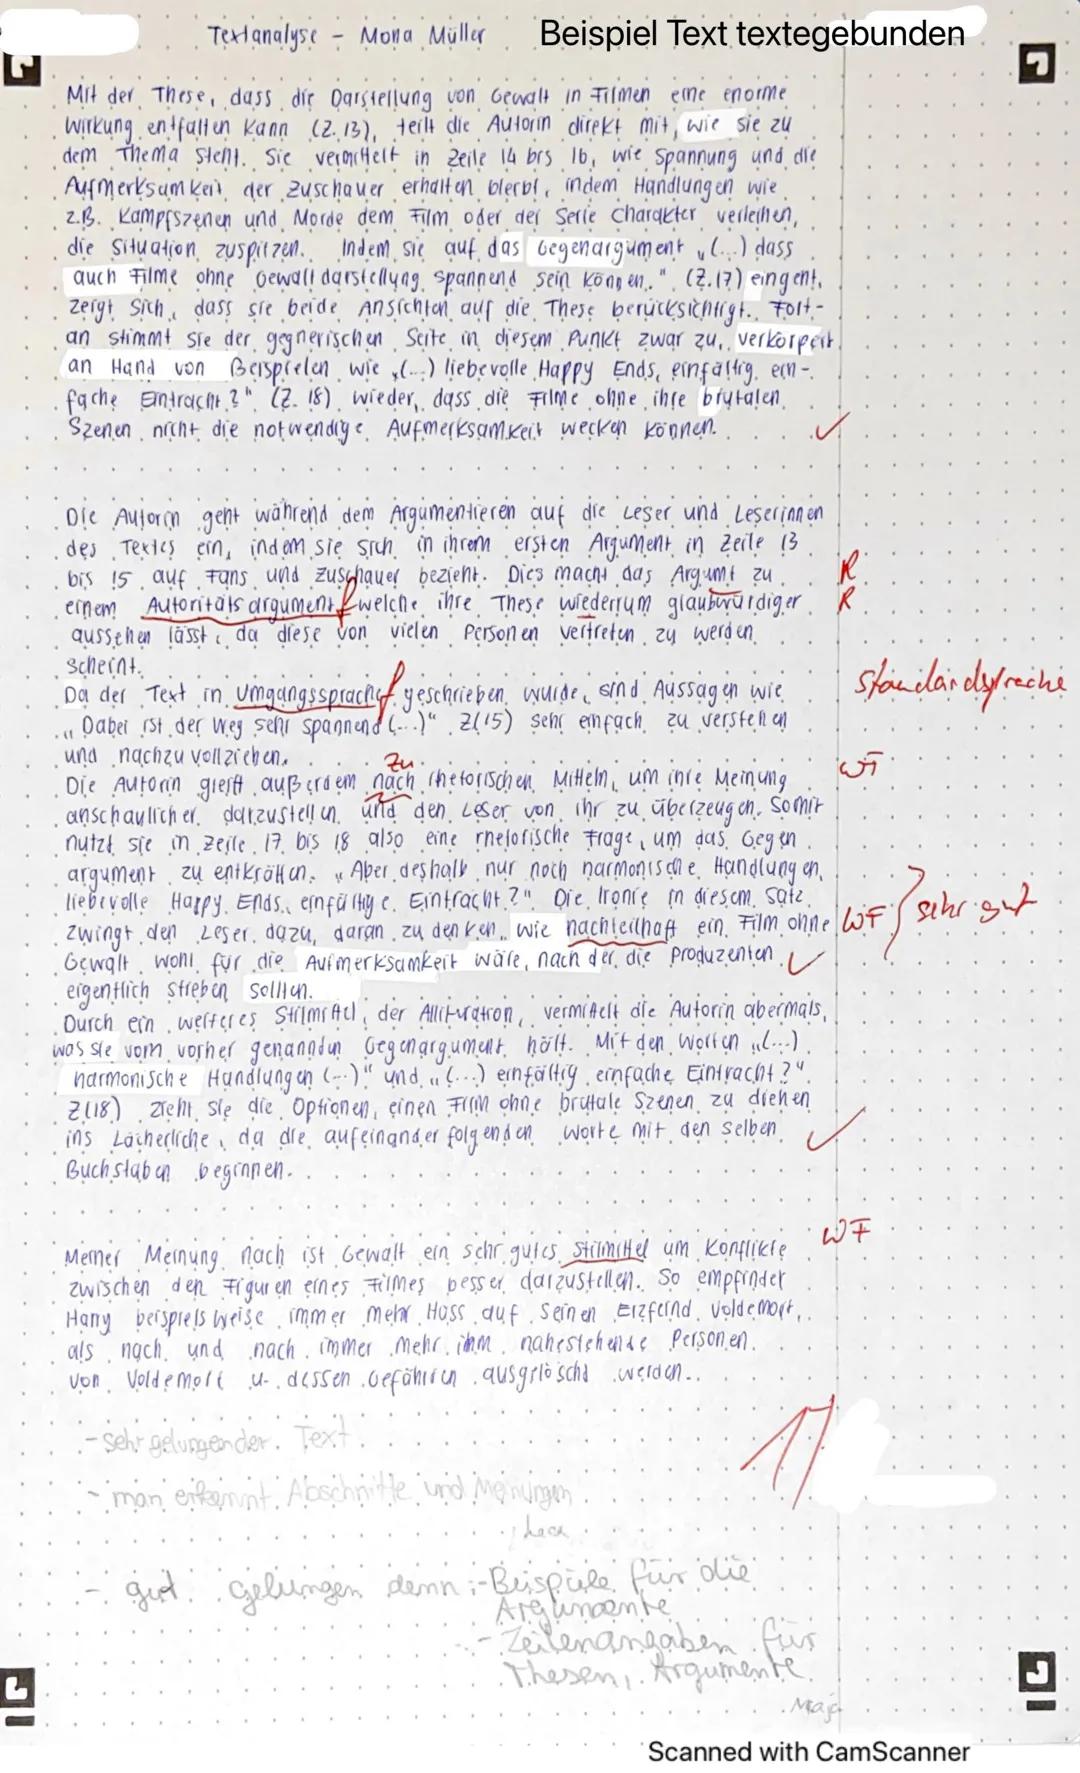 Textanalyse - Mona Müller
Beispiel Text textegebunden
Mit der These, dass die Darstellung von Gewalt in Filmen eine enorme
Wirkung entfalten kann (Z. 13), teilt die Autorin direkt mit, wie sie zu
dem Thema steht. Sie vermittelt in Zeile 14 bis 16, wie Spannung und die
Aufmerksamkeit der Zuschauer erhalten bleibt, indem Handlungen wie
z.B. Kampfszenen und Morde dem Film oder der Serie Charakter verleihen,
die Situation zuspitzen. Indem sie auf das Gegenargument „(...) dass
auch Filme ohne Gewaltdarstellung spannend sein können." (Z.17) eingeht,
zeigt sich, dass sie beide Ansichten auf die These berücksichtigt. Fort-
an stimmt sie der gegnerischen Seite in diesem Punkt zwar zu, verkörpert
an Hand von Beispielen wie „(...) liebevolle Happy Ends, einfältig ein-
fache Eintracht?" (Z. 18) wieder, dass die Filme ohne ihre brutalen
Szenen nicht die notwendige Aufmerksamkeit wecken können. ✓
Die Autorin geht während dem Argumentieren auf die Leser und Leserinnen
des Textes ein, indem sie sich in ihrem ersten Argument in Zeile 13
bis 15 auf Fans und Zuschauer bezieht. Dies macht das Argumt zu R
einem Autoritätsargument f welche ihre These wiederrum glaubwürdiger R
aussehen lässt, da diese von vielen Personen vertreten zu werden
scheint.
Da der Text in Umgangssprache f geschrieben wurde, sind Aussagen wie Standardsprache
„Dabei ist der Weg sehr spannend (...)" Z(15) sehr einfach zu verstehen
und nachzuvollziehen.
zu
Die Autorin greift außerdem nach rhetorischen Mitteln, um ihre Meinung WF
anschaulicher darzustellen und den Leser von ihr zu überzeugen. Somit
nutzt sie in Zeile 17 bis 18 also eine rhetorische Frage, um das Gegen
argument zu entkräften. „Aber deshalb nur noch harmonische Handlungen,
liebevolle Happy Ends, einfältige Eintracht?". Die Ironie in diesem Satz
zwingt den Leser dazu, daran zu denken, wie nachteilhaft ein Film ohne WF sehr gut
Gewalt wohl für die Aufmerksamkeit wäre, nach der die Produzenten ✓
eigentlich streben sollten.
Durch ein weiteres Stilmittel, der Alliteration, vermittelt die Autorin abermals,
was sie vom vorher genannten Gegenargument hält. Mit den Worten „(...)
harmonische Handlungen (...)" und „(...) einfältig einfache Eintracht?"
Z(18) zieht sie die Optionen, einen Film ohne brutale Szenen zu drehen
ins Lächerliche, da die aufeinander folgenden Worte mit den selben ✓
Buchstaben beginnen.
WF
Meiner Meinung nach ist Gewalt ein sehr gutes Stilmittel um Konflikte
zwischen den Figuren eines Filmes besser darzustellen. So empfindet
Harry beispielsweise immer mehr Hass auf seinen Erzfeind Voldemort,
als nach und nach immer mehr ihm nahestehende Personen
von Voldemort u. dessen Gefährten ausgelöscht werden.
- sehr gelungender Text
- man erkennt Abschnitte und Meinungen
- gut gelungen denn: - Beispiele für die
Argumente
- Zeilenangaben für
Thesen, Argumente
Maja
Scanned with CamScanner